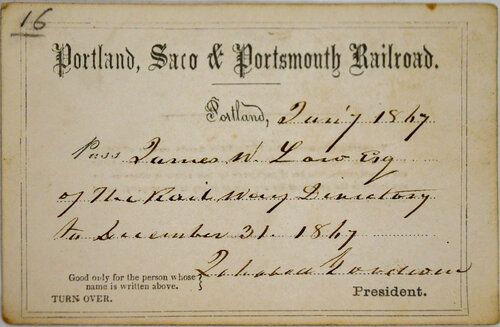 16
Portland, Saco & Portsmouth Railroad.
Portland, Jan'y 1867
Pass James W. Low Esq
of The Rail Way Directory
to December 31. 1867
Good only for the person whose
name is written above.
President.
TURN OVER.